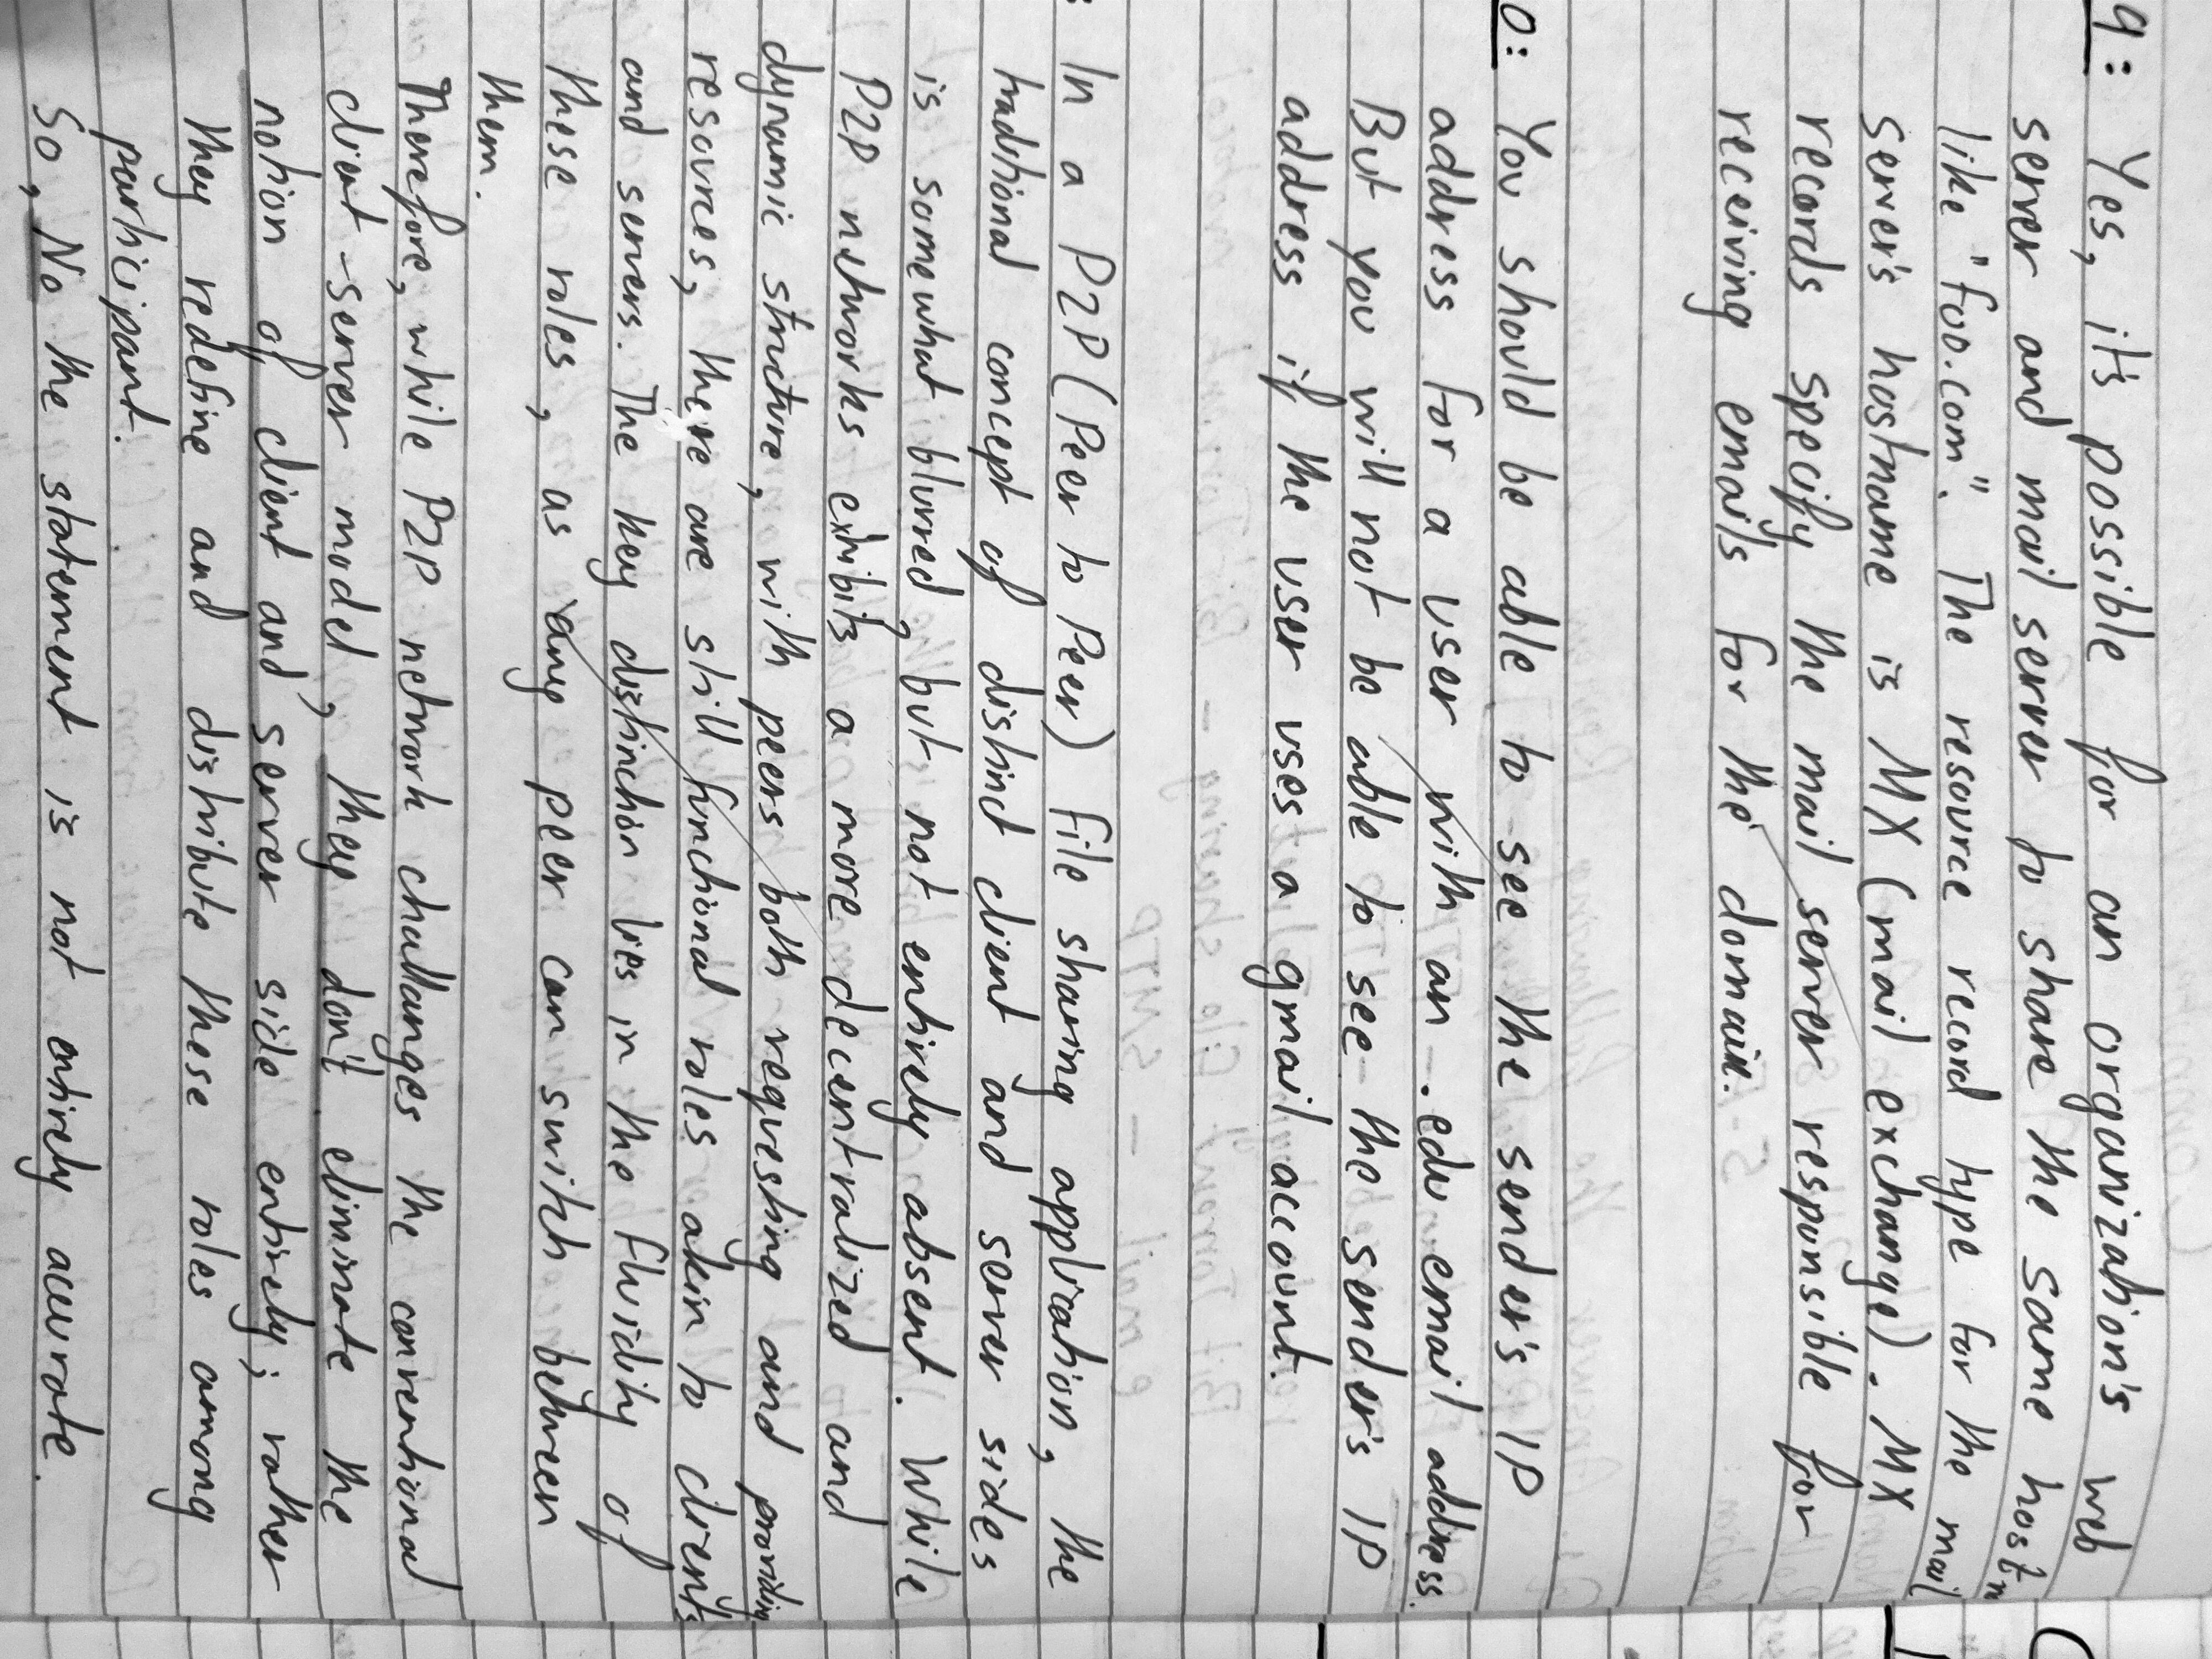 9: Yes, it's possible for an organization's web
server and mail server to share the same hostn
like "foo.com". The resource record type for the mail
server's hostname is MX (mail exchange). MX
records specify the mail server responsible for
receiving emails for the domain.
0: You should be able to see the sender's IP
address for a user with an .edu email address.
But you will not be able to see the sender's IP
address if the user uses a gmail account.
: In a P2P (Peer to Peer) file sharing application, the
traditional concept of distinct client and server sides
is somewhat blurred, but not entirely absent. While
P2P networks exhibits a more decentralized and
dynamic structure, with peers both requesting and providing
resources, there are still functional roles akin to clients
and servers. The key distinction lies in the fluidity of
these roles, as any peer can switch between
them.
Therefore, while P2P network challanges the conventional
client-server model, they don't eliminate the
notion of client and server side entirely; rather
they redefine and distribute these roles among
participant.
So, No the statement is not entirely accurate.